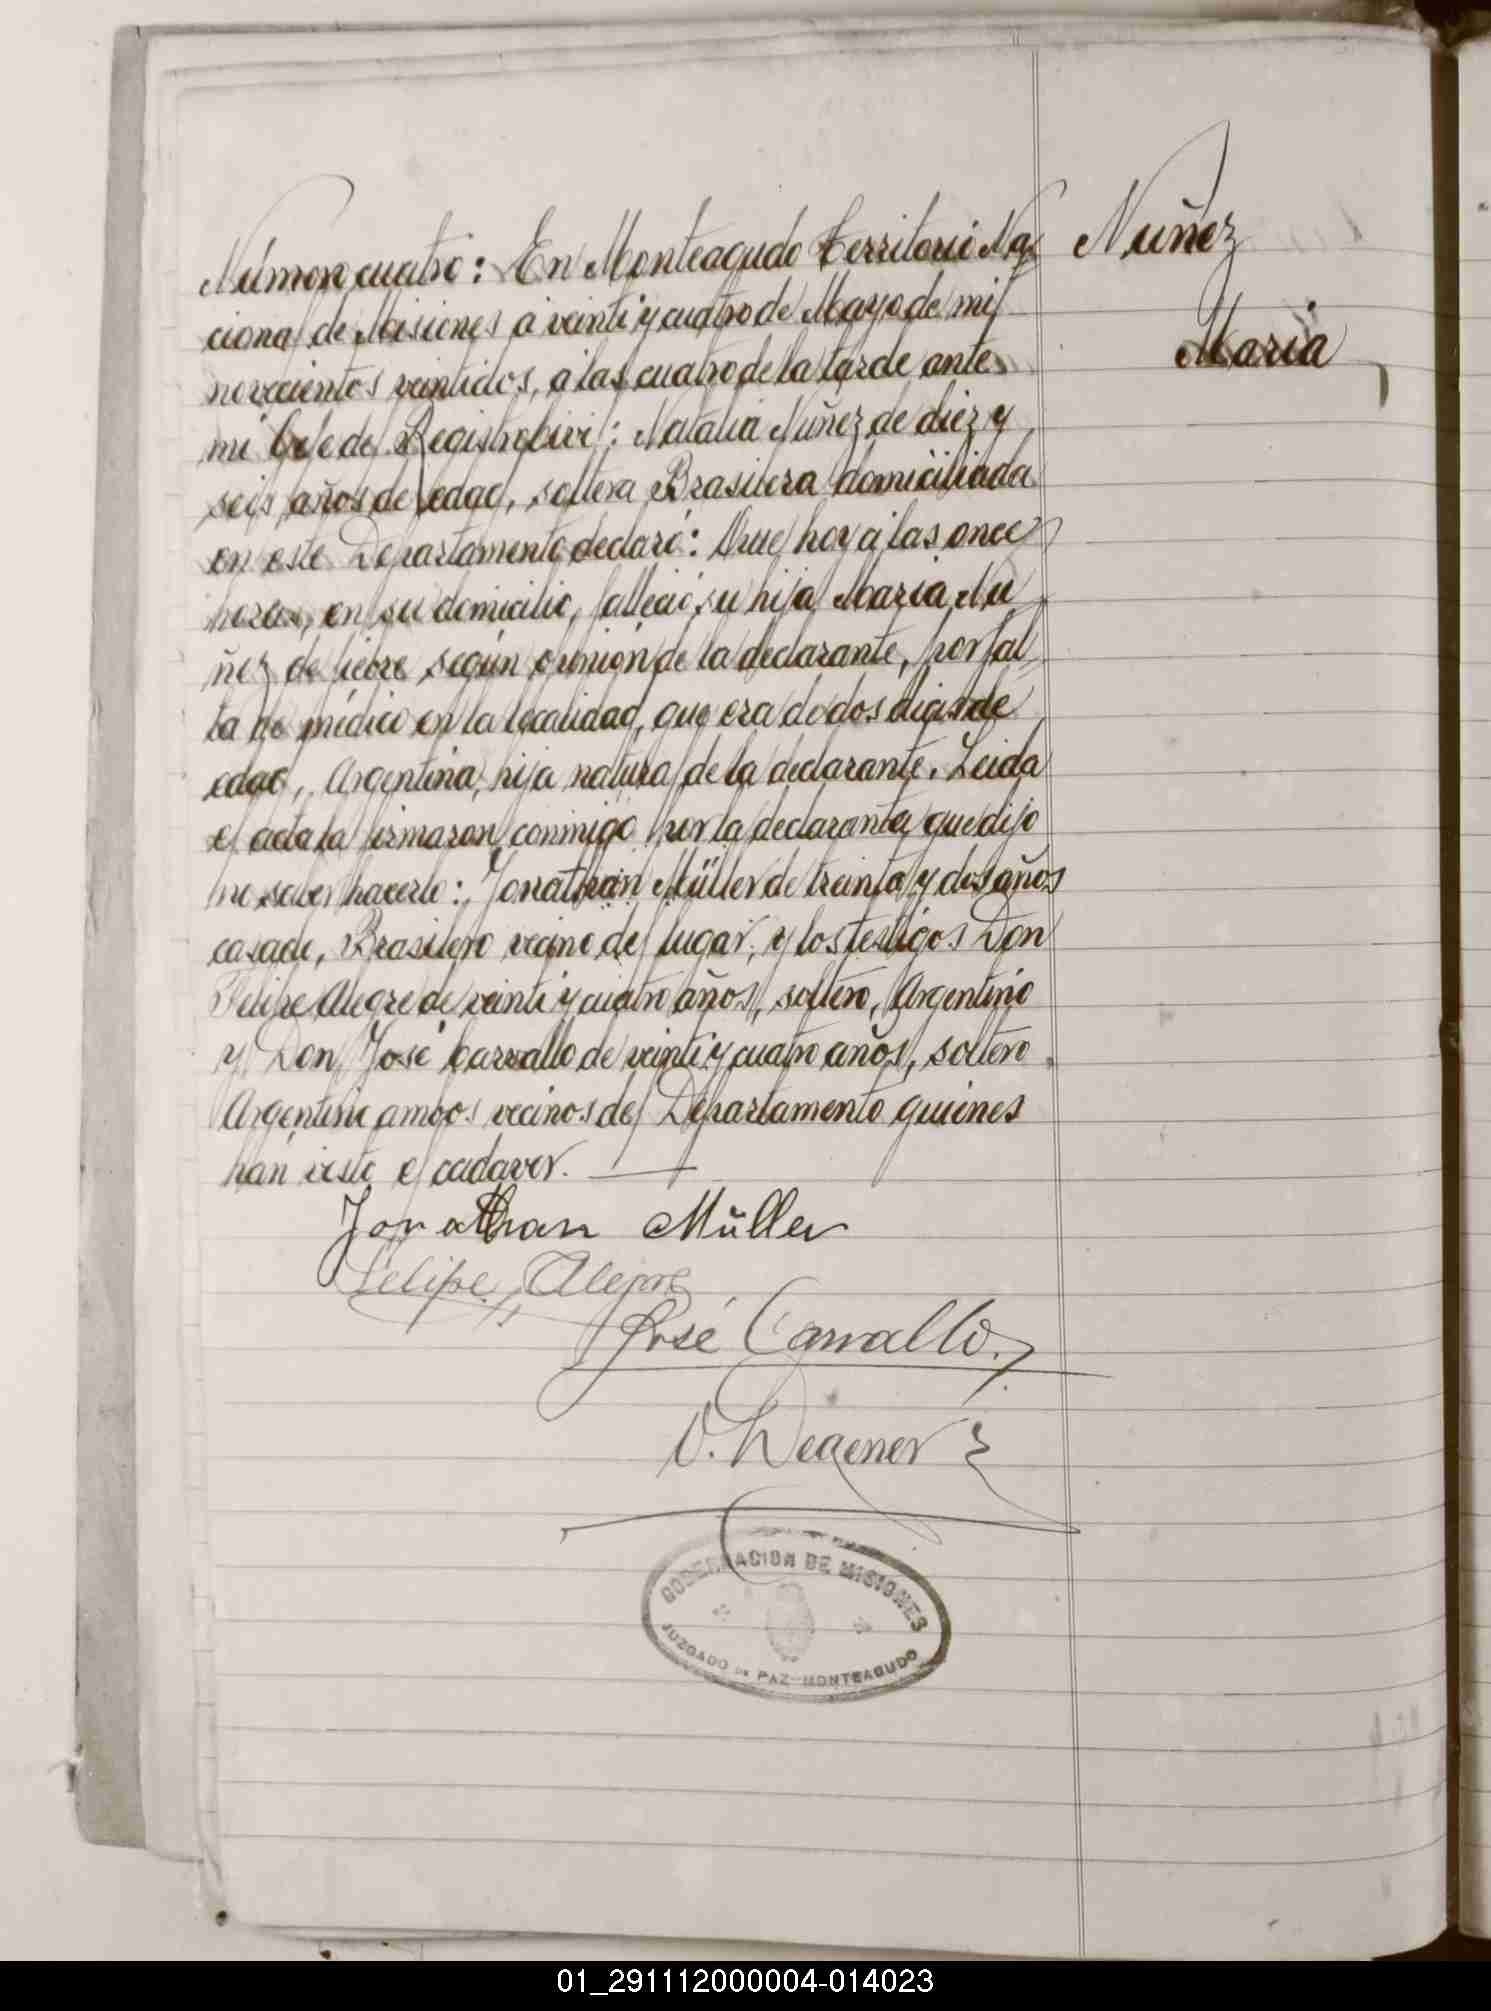 Númer cuatro: En Monteagudo territorio Na
cional de Misiones á veinti y cuatro de Mayo de mil
novecientos veintidos, a las cuatro de la tarde ante
mi Gefe del Registro Civil: Natalia Nuñez de diez y
seis años de edad, soltera Brasilera domiciliada
en este Departamento declaró: Que hoy a las once
horas, en su domicilio, falleció su hija Maria Nu
ñez de fiebre según opinión de la declarante, por fal
ta de médico en la localidad, que era de dos dias de
edad, Argentina, hija natural de la declarante. Leida
el acta la firmaron conmigo por la declarante que dijo
no saber hacerlo: Jonathan Müller de treinta y dos años
casado, Brasilero vecino del lugar, y los testigos Don
Felipe Alegre de veinti y cuatro años, soltero, Argentino
y Don José Carvallo de veinti y cuatro años, soltero
Argentino ambos vecinos del Departamento quienes
han visto el cadaver.
Nuñez
Maria
Jonathan Müller
Felipe Alegre
José Carvallo.
O. Wegener
GOBERNACION DE MISIONES
JUZGADO DE PAZ-MONTEAGUDO
01_291112000004-014023